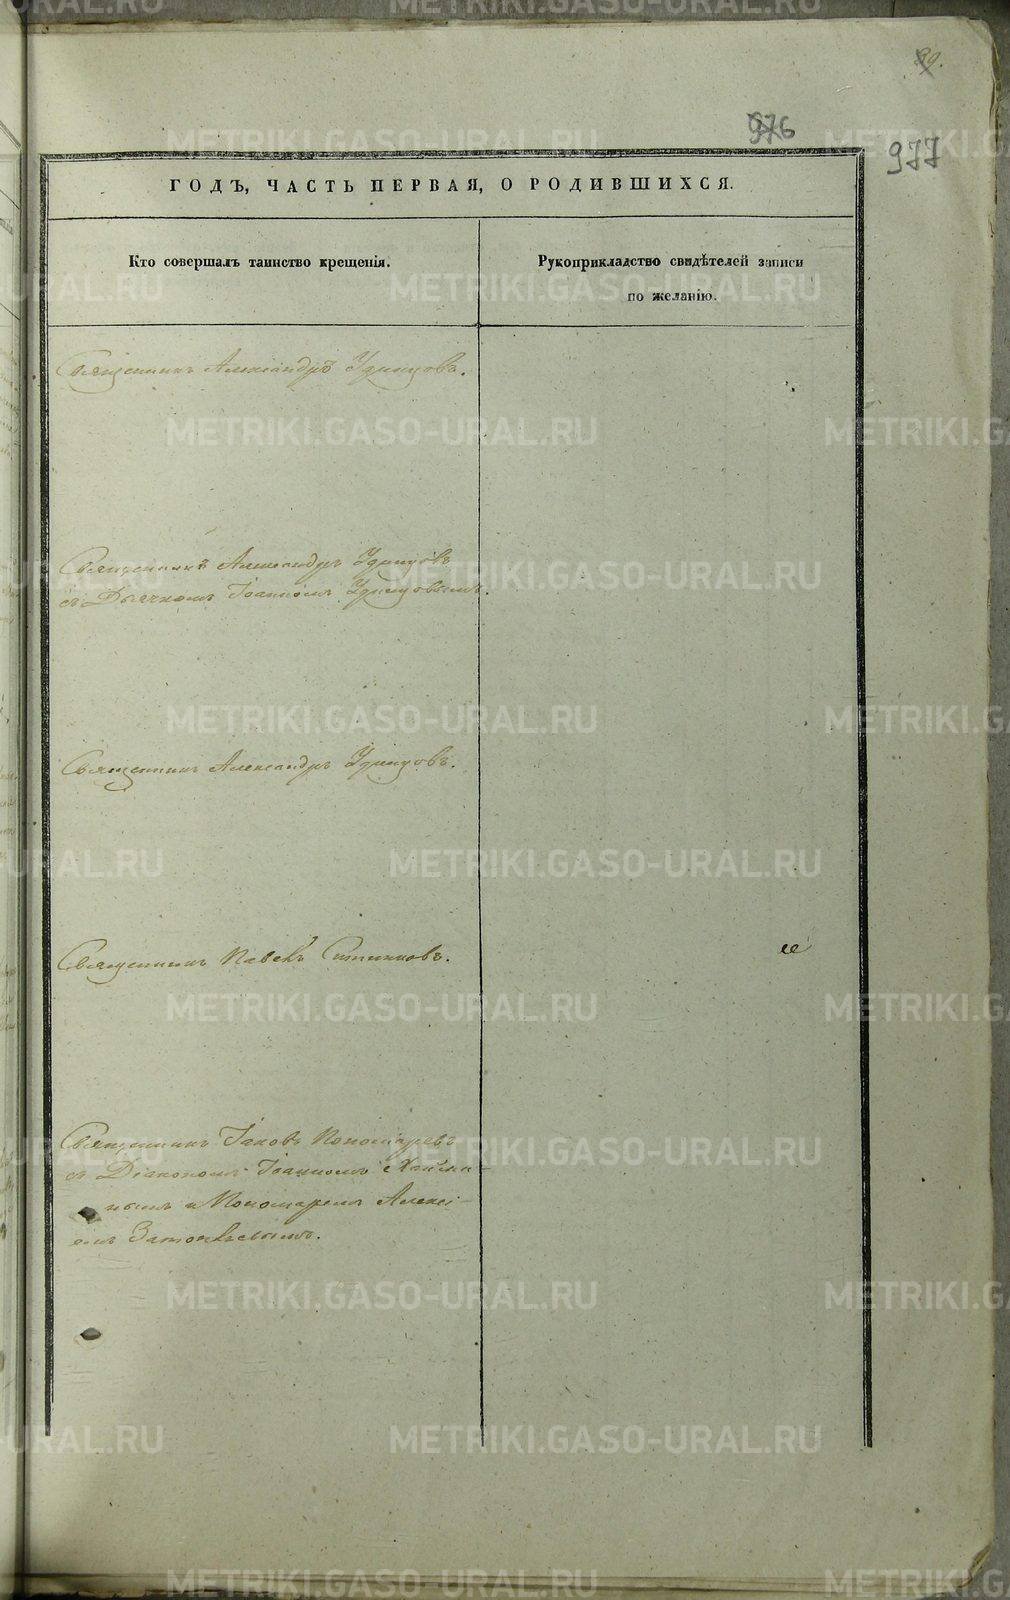 99.
976
977
ГОДЪ, ЧАСТЬ ПЕРВАЯ, О РОДИВШИХСЯ.
Кто совершалъ таинство крещенія.
Рукоприкладство свидѣтелей записи
по желанію.
Священникъ Александръ Удинцовъ.
Священникъ Александръ Удинцовъ
съ Дьячкомъ Іоанномъ Удинцовымъ.
Священникъ Александръ Удинцовъ.
Священникъ Павелъ Ситниковъ.
Священникъ Іаковъ Пономаревъ
съ Діакономъ Іоанномъ
нымъ и Пономаремъ Алексі-
емъ
METRIKI.GASO-URAL.RU